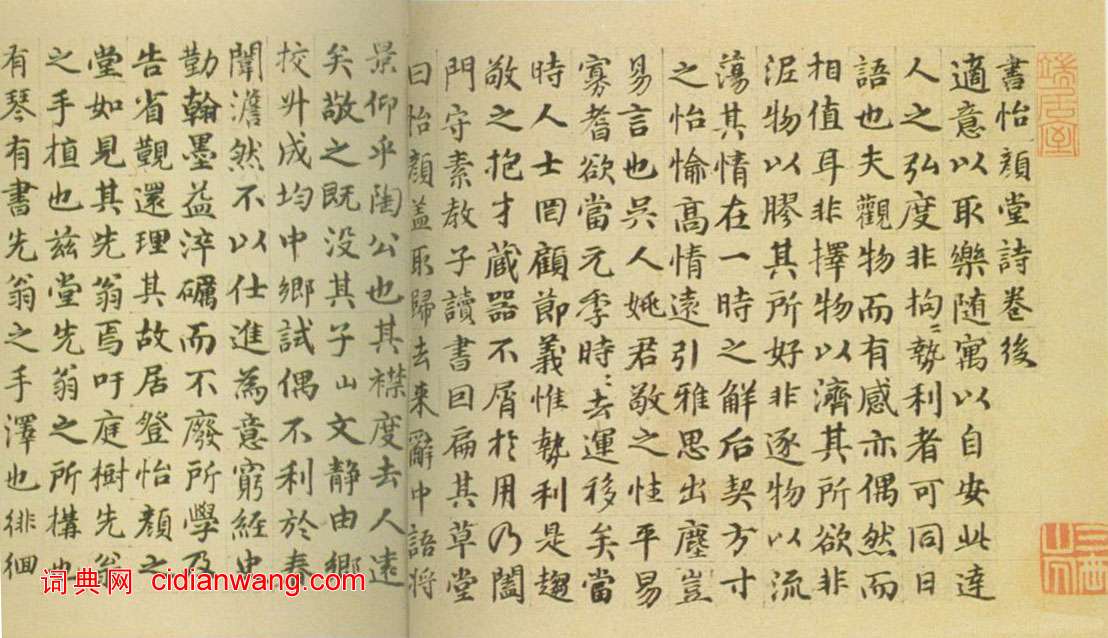 書怡顔堂詩卷後
適意以取樂随寓以自安此達
人之弘度非拘〻勢利者可同日
語也夫觀物而有感亦偶然而
相值耳非擇物以濟其所欲非
泥物以膠其所好非逐物以流
蕩其情在一時之解后契方寸
之怡愉高情遠引雅思出塵豈
易言也吳人姚君敬之性平易
寡耆欲當元季時〻去運移矣當
時人士罔顧節義惟勢利是趨
敬之抱才蔵器不屑扵用乃闔
門守素教子讀書曰扁其草堂
曰怡顔盖取歸去来辭中語将
景仰乎陶公也其襟度去人遠
矣敬之既没其子山文静由鄉
挍升成均中鄉試偶不利於春
闈澹然不以仕進為意窮経史
勤翰墨益淬礪而不廢所學及
告省覲還理其故居登怡顔之
堂如見其先翁焉吁庭樹先翁
之手植也兹堂先翁之所構也
有琴有書先翁之手澤也徘徊
词典网 cidianwang.com